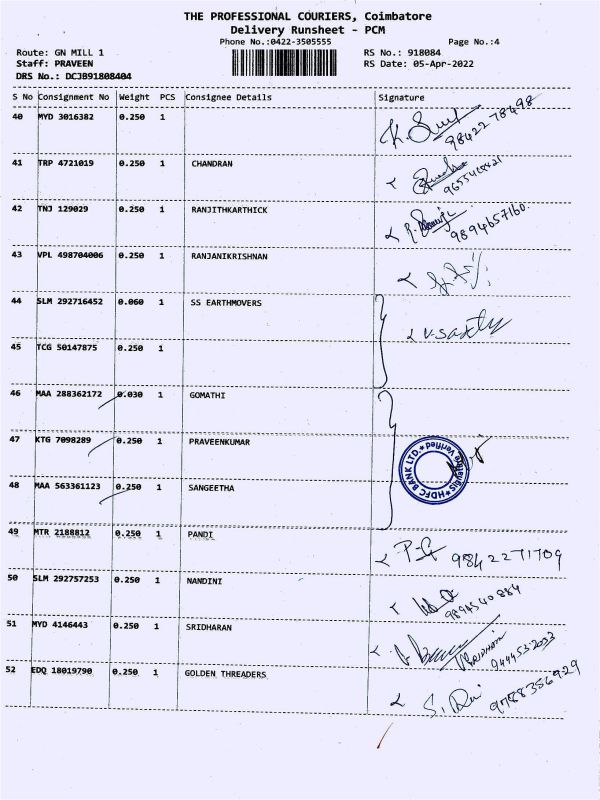 THE PROFESSIONAL COURIERS, Coimbatore
Delivery Runsheet - PCM
Phone No.:0422-3505555 Page No.:4
Route: GN MILL 1 RS No.: 918084
Staff: PRAVEEN RS Date: 05-Apr-2022
DRS No.: DCJB91808404
S No Consignment No Weight PCS Consignee Details Signature
40 MYD 3016382 0.250 1 98422-78498
41 TRP 4721019 0.250 1 CHANDRAN
42 TNJ 129029 0.250 1 RANJITHKARTHICK 9894657160
43 VPL 498704006 0.250 1 RANJANIKRISHNAN
44 SLM 292716452 0.060 1 SS EARTHMOVERS
45 TCG 50147875 0.250 1
46 MAA 288362172 0.030 1 GOMATHI
47 KTG 7098289 0.250 1 PRAVEENKUMAR
HDFC BANK LTD. * Signature Verified *
48 MAA 563361123 0.250 1 SANGEETHA
49 MTR 2188812 0.250 1 PANDI 9842271709
50 SLM 292757253 0.250 1 NANDINI 9894540884
51 MYD 4146443 0.250 1 SRIDHARAN
52 EDQ 18019790 0.250 1 GOLDEN THREADERS 9788356929